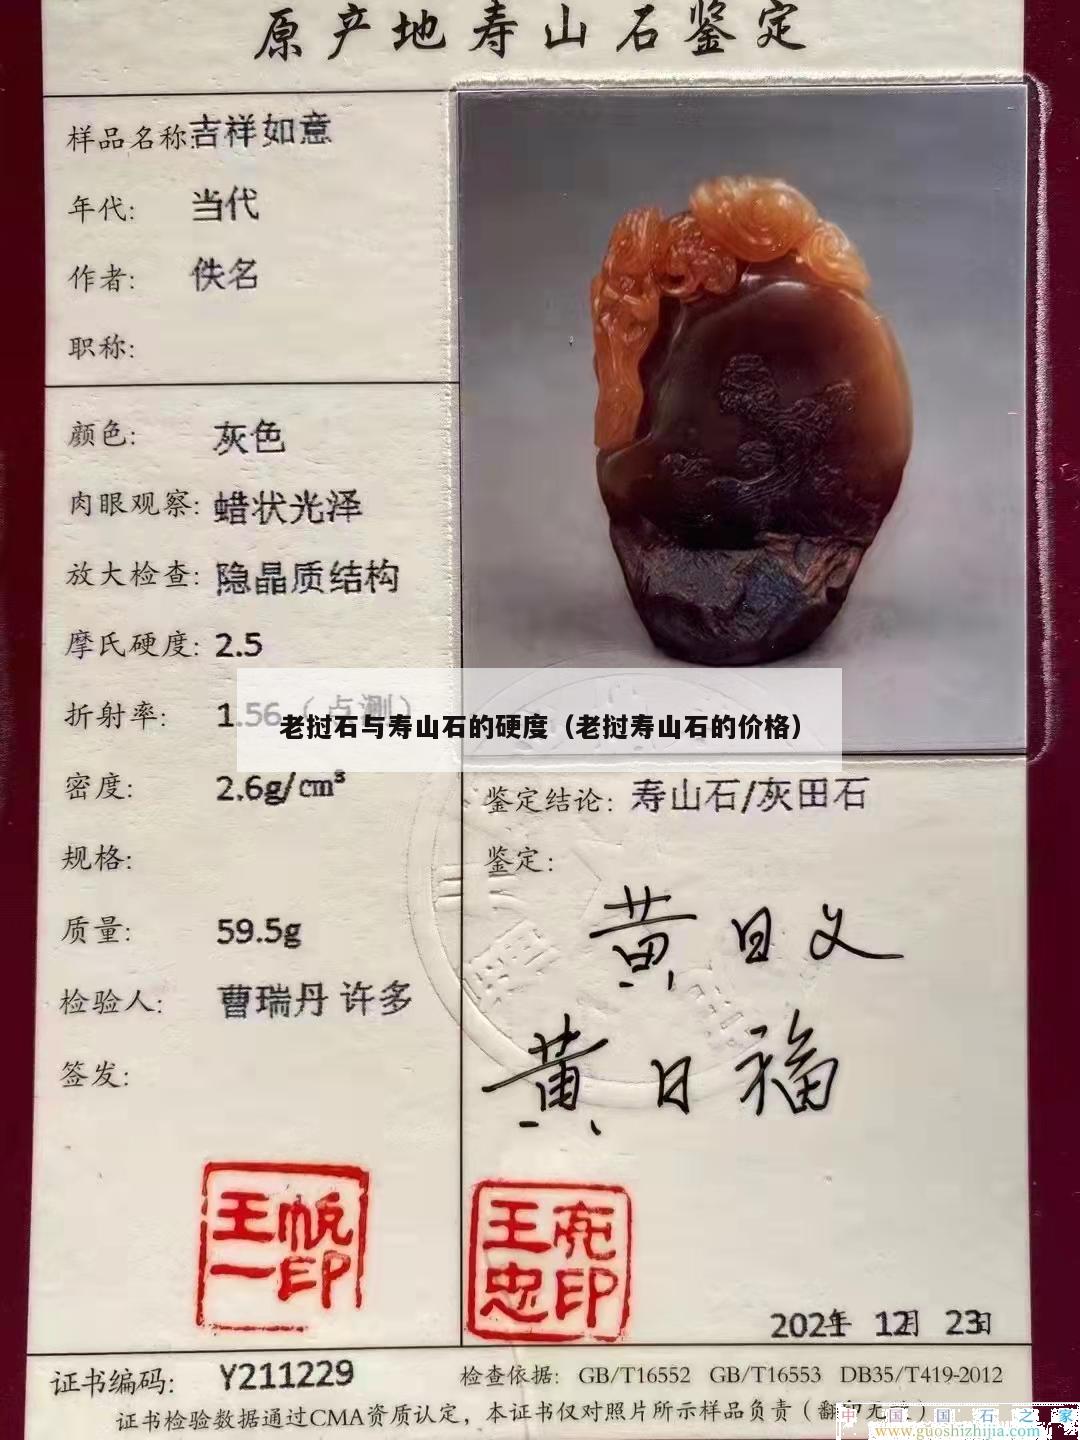 原产地寿山石鉴定
样品名称:吉祥如意
年代: 当代
作者: 佚名
职称:
颜色: 灰色
肉眼观察: 蜡状光泽
放大检查: 隐晶质结构
摩氏硬度: 2.5
折射率: 1.56（点测）
老挝石与寿山石的硬度（老挝寿山石的价格）
密度: 2.6g/cm³
规格:
质量: 59.5g
检验人: 曹瑞丹 许多
签发:
王帆
一印
鉴定结论: 寿山石/灰田石
鉴定:
黄日文
黄日福
王亮
忠印
2021年 12月 23日
证书编码: Y211229
检查依据: GB/T16552 GB/T16553 DB35/T419-2012
证书检验数据通过CMA资质认定，本证书仅对照片所示样品负责（翻印无效）
中国国石之家
www.guoshizhijia.com